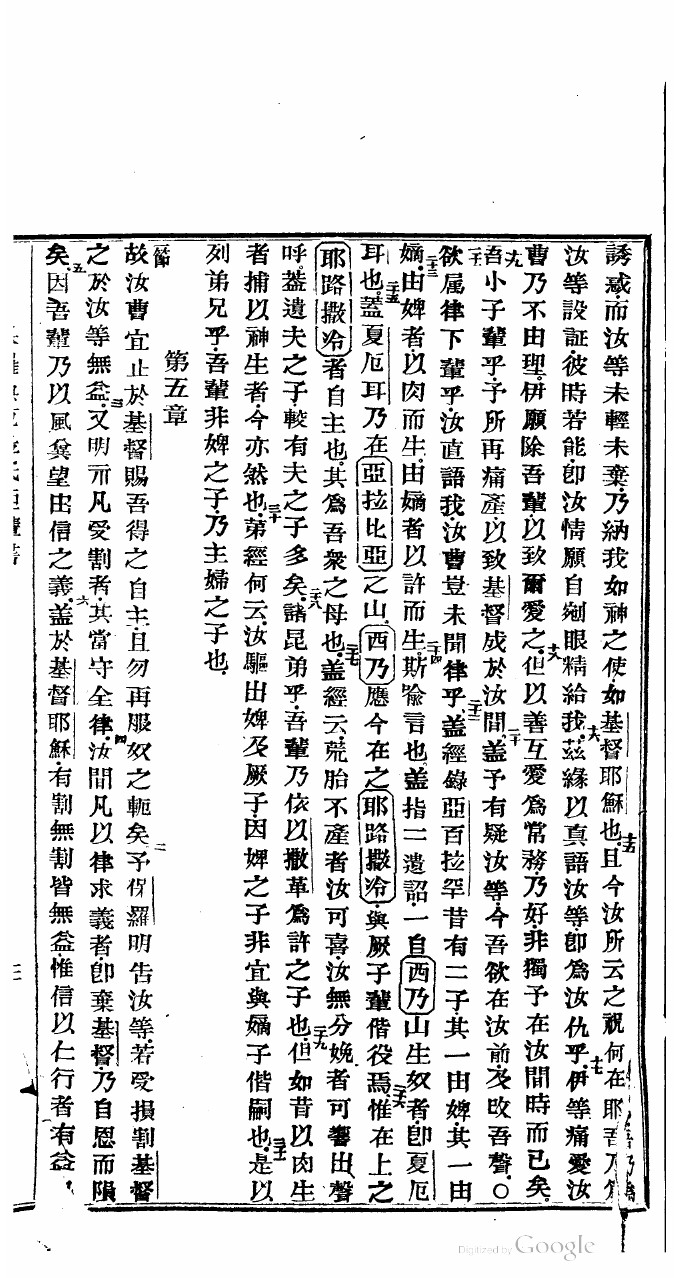 誘惑而汝等未輕未棄乃納我如神之使如基督耶穌也十五且今汝所云之祝何在耶吾乃為
汝等設証彼時若能卽汝情願自剜眼精給我十六茲緣以真語汝等卽為汝仇乎十七伊等痛愛汝
曹乃不由理伊願除吾輩以致爾愛之十八但以善互愛為常務乃好非獨予在汝間時而已矣
十九吾小子輩乎予所再痛產以致基督成於汝間二十蓋予有疑汝等今吾欲在汝前及改吾聲○
二十一欲属律下輩乎汝直語我汝曹豈未聞律乎二十二蓋經錄亞百拉罕昔有二子其一由婢其一由
嫡二十三由婢者以肉而生由嫡者以許而生二十四斯喻言也蓋指二遺詔一自西乃山生奴者卽夏厄
耳也二十五蓋夏厄耳乃在亞拉比亞之山西乃應今在之耶路撒冷與厥子輩偕役焉二十六惟在上之
耶路撒冷者自主也其為吾衆之母也二十七蓋經云荒胎不產者汝可喜汝無分娩者可響出聲
呼蓋遺夫之子較有夫之子多矣二十八諸昆弟乎吾輩乃依以撒革為許之子也二十九但如昔以肉生
者捕以神生者今亦然也三十苐經何云汝驅出婢及厥子因婢之子非宜與嫡子偕嗣也三十一是以
列弟兄乎吾輩非婢之子乃主婦之子也
第五章
一節故汝曹宜止於基督賜吾得之自主且勿再服奴之軛矣二予保羅明告汝等若受損割基督
之於汝等無益三又明示凡受割者其當守全律四汝間凡以律求義者卽棄基督乃自恩而隕
矣五因吾輩乃以風冀望由信之義六蓋於基督耶穌有割無割皆無益惟信以仁行者有益
Digitized by Google